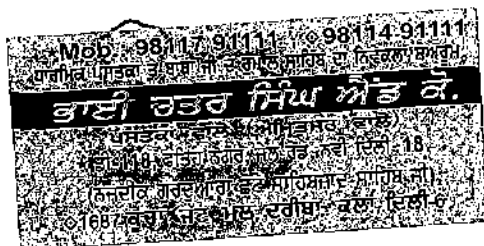 Mob. 98117-91111, 98114-91111
ਧਾਰਮਿਕ ਪੁਸਤਕਾਂ ਤੇ ਬਾਬਾ ਜੀ ਦੇ ਰੁਮਾਲ ਸਾਹਿਬ ਦਾ
ਭਾਈ ਚਤਰ ਸਿੰਘ ਐਂਡ ਕੋ.
ਪੁਸਤਕਾਂ ਵਾਲੇ (ਅੰਮ੍ਰਿਤਸਰ ਵਾਲੇ)
118, ਨਗਰ, ਨਵੀਂ ਦਿੱਲੀ 18
(ਨਜ਼ਦੀਕ ਗੁਰਦੁਆਰਾ ਸਾਹਿਬਜ਼ਾਦੇ ਸਾਹਿਬ ਜੀ)
1687, ਕੂਚਾ ਦਰੀਬਾ ਕਲਾਂ ਦਿੱਲੀ-6